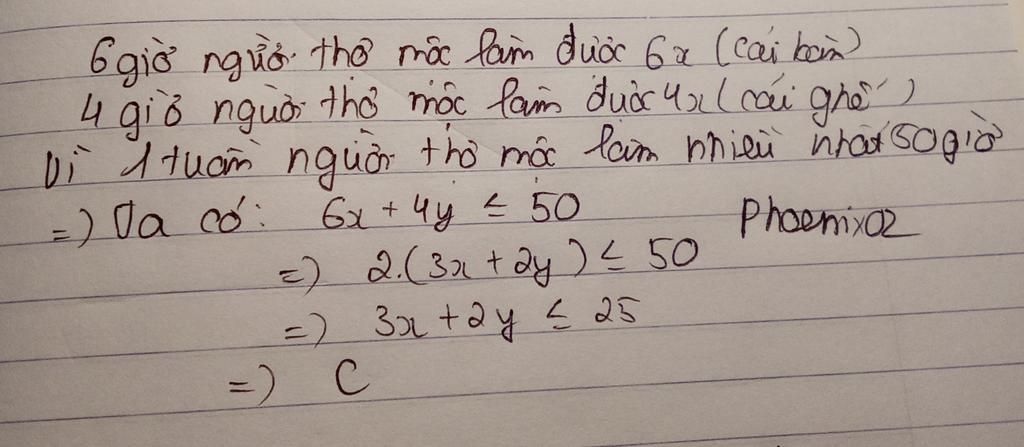 6 giờ người thợ mộc làm được 6x (cái bàn)
4 giờ người thợ mộc làm được 4x (cái ghế)
Vì 1 tuần người thợ mộc làm nhiều nhất 50 giờ
=) Ta có: 6x + 4y ≤ 50 Phoenix02
=) 2.(3x + 2y) ≤ 50
=) 3x + 2y ≤ 25
=) C